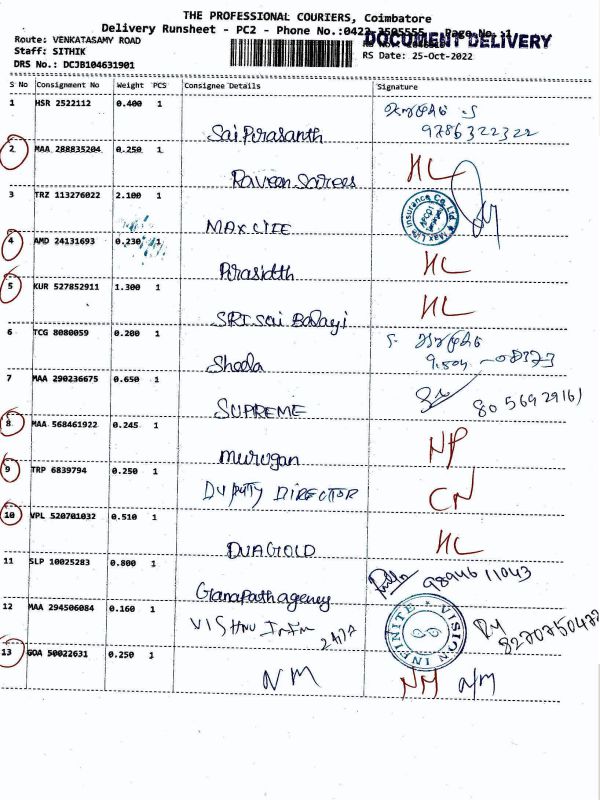 THE PROFESSIONAL COURIERS, Coimbatore
Delivery Runsheet - PC2 - Phone No.:0422 Page No.:1
DOCUMENT DELIVERY
Route: VENKATASAMY ROAD
Staff: SITHIK
RS Date: 25-Oct-2022
DRS No.: DCJB104631901
S No Consignment No Weight PCS Consignee Details Signature
1 HSR 2522112 0.400 1
9786322322
2 MAA 288835204 0.250 1
HL
3 TRZ 113276022 2.100 1
MAX LIFE
Max Life Insurance Co. Ltd.
4 AMD 24131693 0.230 1
HL
5 KUR 527852911 1.300 1
SRI Sai Balaji HL
6 TCG 8080059 0.200 1
Sheela
7 MAA 290236675 0.650 1
SUPREME 8056929161
8 MAA 568461922 0.245 1
murugan NP
9 TRP 6839794 0.250 1
DUPUTY DIRECTOR CN
10 VPL 520701032 0.510 1
DUAGOLD HL
11 SLP 10025283 0.800 1
98946 11043
Ganapath agency
12 MAA 294506084 0.160 1
VISHNU
INFINITE VISION
13 GOA 50022631 0.250 1
NM NM N/M